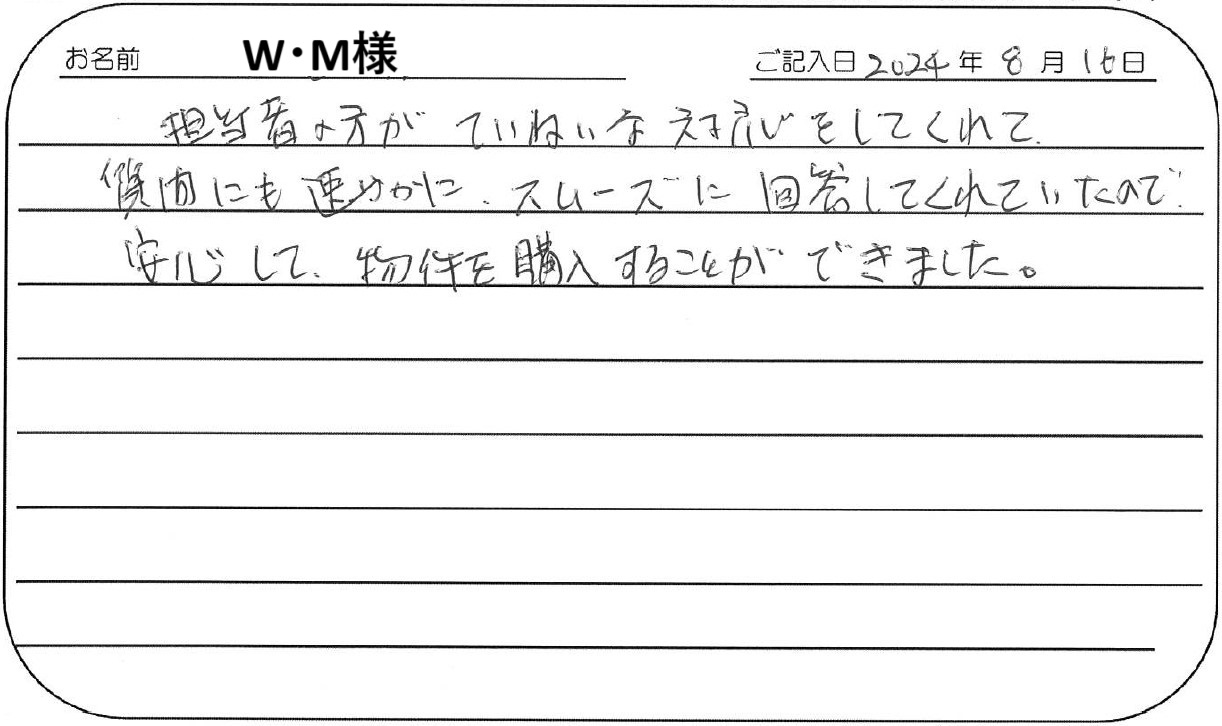 お名前 W・M様 ご記入日 2024年 8月 16日
担当者の方が ていねいな対応をしてくれて、
質問にも速やかに、スムーズに回答してくれていたので
安心して、物件を購入することができました。